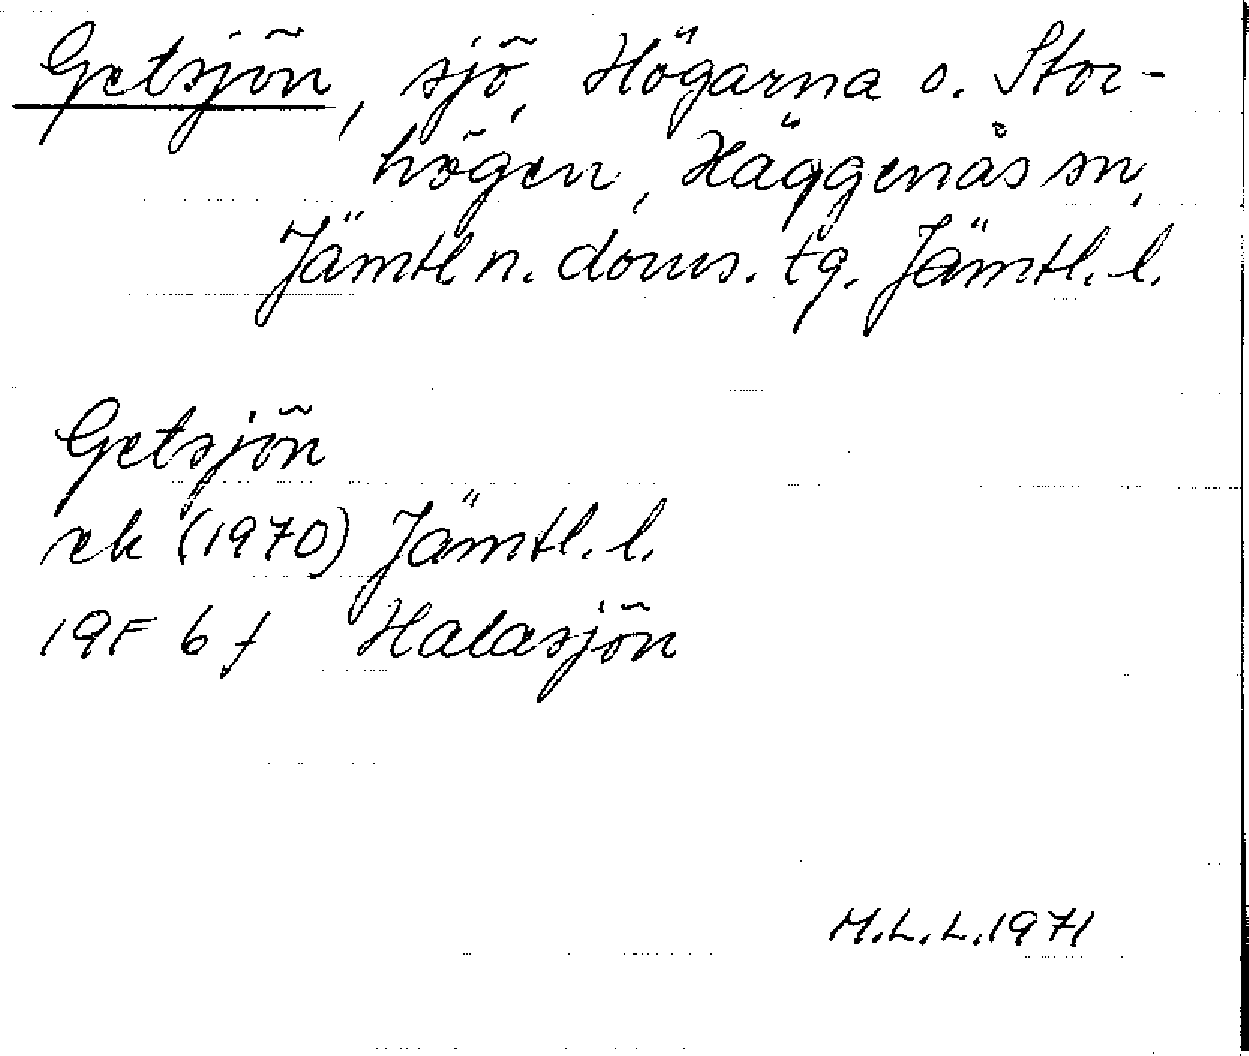 Getsjön, sjö, Högarna o. Stor-
högen, Häggenås sn,
Jämtl n. doms. tg. Jämtl. l.
Getsjön
ek (1970) Jämtl. l.
19F 6 f Halasjön
M.L.L. 1971